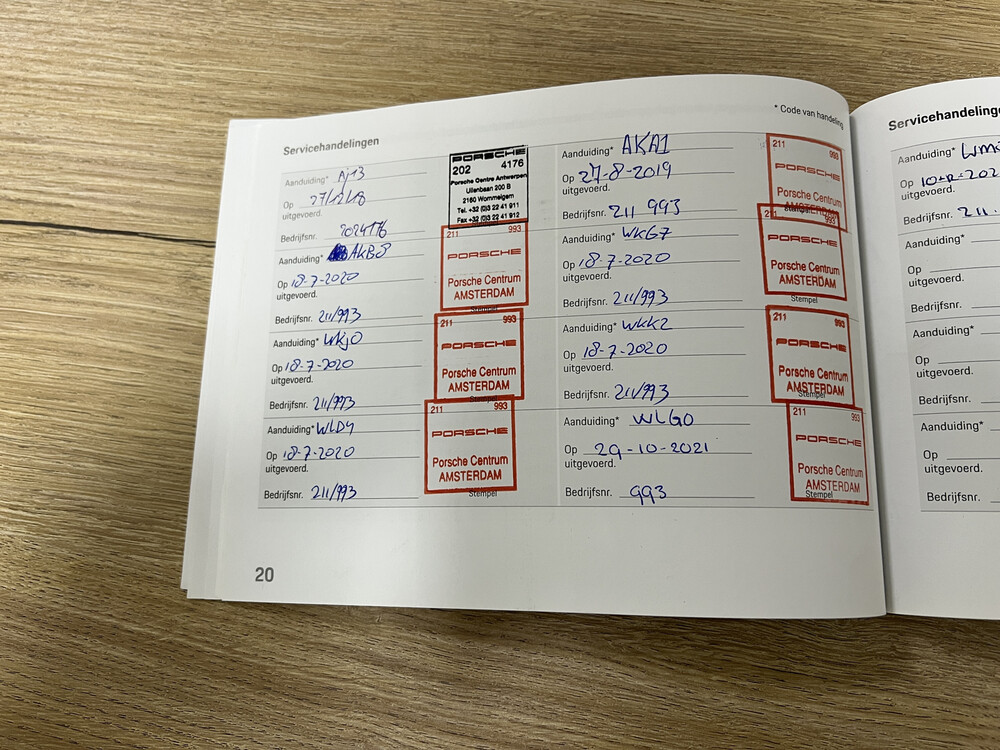 * Code van handeling
Servicehandelingen
Aanduiding* AJ13
Op 27/12/18
uitgevoerd.
Bedrijfsnr. 2024176
PORSCHE
202 4176
Porsche Centre Antwerpen
Uilenbaan 200 B
2160 Wommelgem
Tel. +32 (0)3 22 41 911
Fax +32 (0)3 22 41 912
Aanduiding* AKA1
Op 27-8-2019
uitgevoerd.
Bedrijfsnr. 211 993
211 993
PORSCHE
Porsche Centrum
AMSTERDAM
Stempel
Aanduiding* AKB8
Op 18-7-2020
uitgevoerd.
Bedrijfsnr. 211/993
211 993
PORSCHE
Porsche Centrum
AMSTERDAM
Stempel
Aanduiding* WKG7
Op 18-7-2020
uitgevoerd.
Bedrijfsnr. 211/993
211 993
PORSCHE
Porsche Centrum
AMSTERDAM
Stempel
Aanduiding* WKJ0
Op 18-7-2020
uitgevoerd.
Bedrijfsnr. 211/993
211 993
PORSCHE
Porsche Centrum
AMSTERDAM
Aanduiding* WKK2
Op 18-7-2020
uitgevoerd.
Bedrijfsnr. 211/993
211 993
PORSCHE
Porsche Centrum
AMSTERDAM
Stempel
Aanduiding* WLD4
Op 18-7-2020
uitgevoerd.
Bedrijfsnr. 211/993
211 993
PORSCHE
Porsche Centrum
AMSTERDAM
Stempel
Aanduiding* WLG0
Op 29-10-2021
uitgevoerd.
Bedrijfsnr. 993
211 993
PORSCHE
Porsche Centrum
AMSTERDAM
Stempel
20
Servicehandelinge
Aanduiding*
Op
uitgevoerd.
Bedrijfsnr. 211
Aanduiding*
Op
uitgevoerd.
Bedrijfsnr.
Aanduiding*
Op
uitgevoerd.
Bedrijfsnr.
Aanduiding*
Op
uitgevoerd.
Bedrijfsnr.